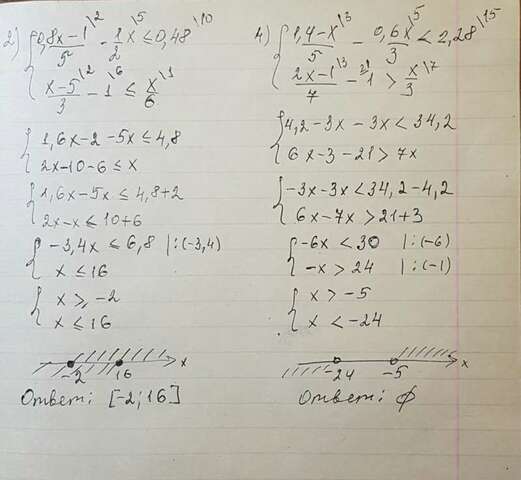 2) { (0,8x-1)/5 \2 - 1/2 x \5 ≤ 0,48 \10
(x-5)/3 \2 - 1 \6 ≤ x/6 \1
{ 1,6x-2-5x ≤ 4,8
2x-10-6 ≤ x
{ 1,6x-5x ≤ 4,8+2
2x-x ≤ 10+6
{ -3,4x ≤ 6,8 |:(-3,4)
x ≤ 16
{ x ≥ -2
x ≤ 16
-2 16 x
Ответ: [-2; 16]
4) { (1,4-x)/5 \3 - 0,6x/3 \5 < 2,28 \15
(2x-1)/7 \3 - 1 \21 > x/3 \7
{ 4,2-3x-3x < 34,2
6x-3-21 > 7x
{ -3x-3x < 34,2-4,2
6x-7x > 21+3
{ -6x < 30 |:(-6)
-x > 24 |:(-1)
{ x > -5
x < -24
-24 -5 x
Ответ: ∅